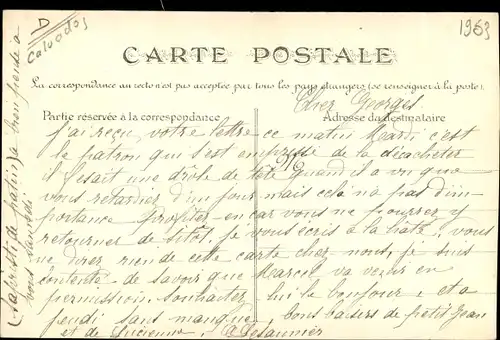 D
Calvados
1953
CARTE POSTALE
La correspondance au recto n'est pas acceptée par tous les pays étrangers (se renseigner à la poste).
Cher Georges
Partie réservée à la correspondance
Adresse du destinataire
J'ai reçu votre lettre ce matin Mardi c'est
le patron qui s'est empressé de la décacheter
il fesait une drôle de tête quand il a vu que
vous retardiez d'un jour mais cela n'a pas d'im-
portance profiter-en car vous ne pourrez y
retourner de sitôt, je vous écris à la hâte, vous
ne direz rien de cette carte chez-nous, je suis
contente de savoir que Marcel va venir en
permission, souhaiter lui le bonjour, et a
jeudi sans manque, bons baisers de petit Jean
et de Lucienne,
vous